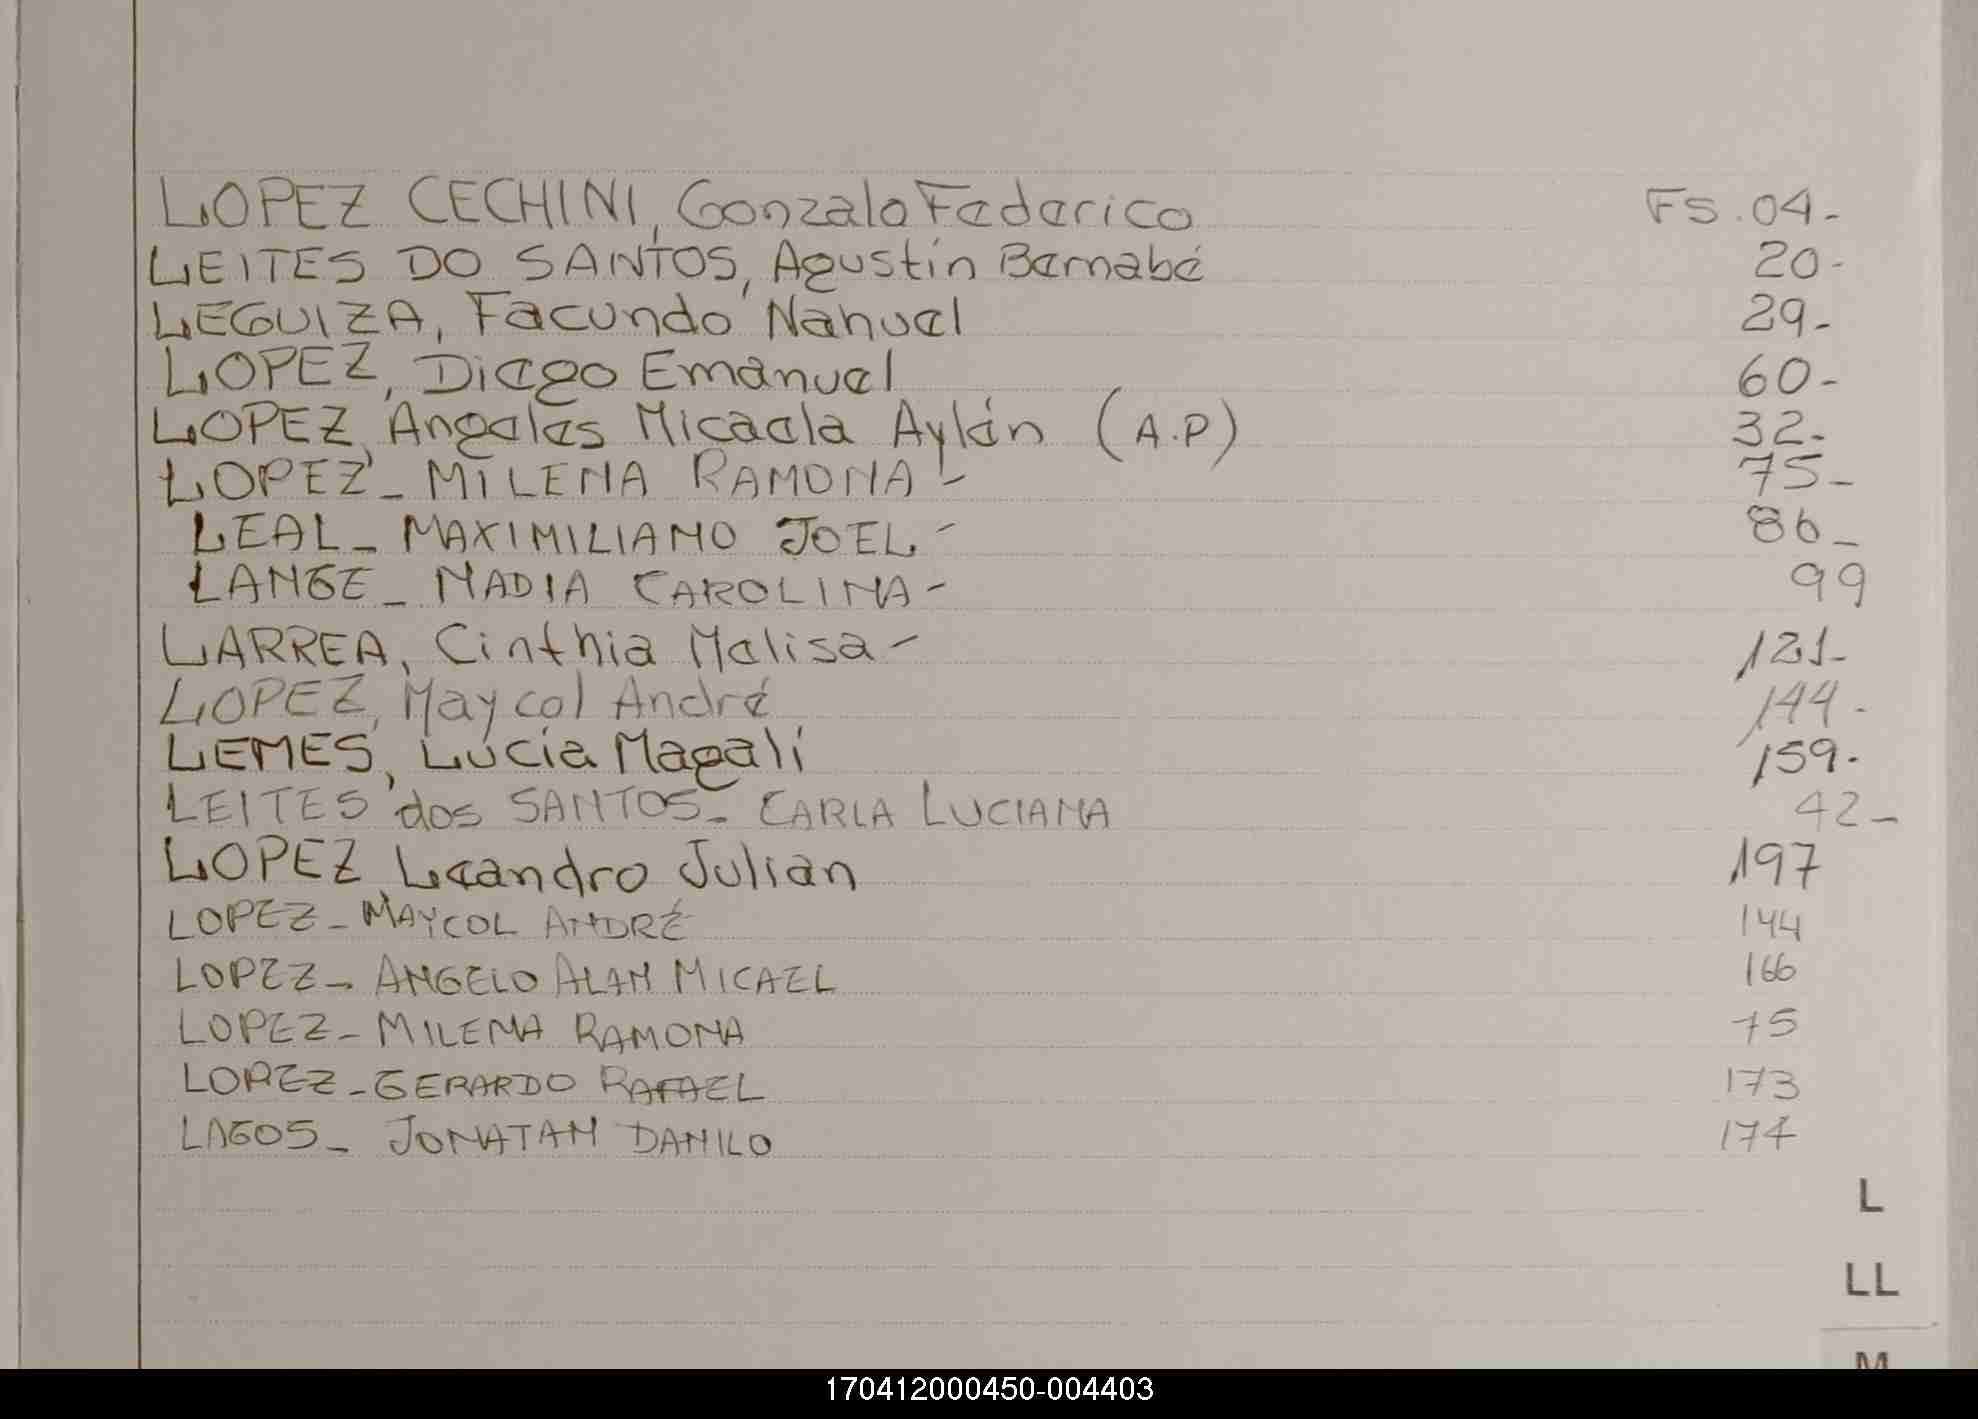 LOPEZ CECHINI, Gonzalo Federico FS.04-
LEITES DO SANTOS, Agustín Bernabé 20-
LEGUIZA, Facundo Nahuel 29-
LOPEZ, Diego Emanuel 60-
LOPEZ, Angeles Micaela Aylén (A.P) 32-
LOPEZ- MILENA RAMONA- 75-
LEAL- MAXIMILIANO JOEL- 86-
LANGE- NADIA CAROLINA- 99
LARREA, Cinthia Melisa- 121-
LOPEZ, Maycol André 144-
LEMES, Lucía Magalí 159-
LEITES dos SANTOS- CARLA LUCIANA 42-
LOPEZ, Leandro Julian 197
LOPEZ- MAYCOL ANDRÉ 144
LOPEZ- ANGELO ALAN MICAEL 166
LOPEZ- MILENA RAMONA 75
LOPEZ- GERARDO RAFAEL 173
LAGOS- JONATAN DANILO 174
L
LL
M
170412000450-004403